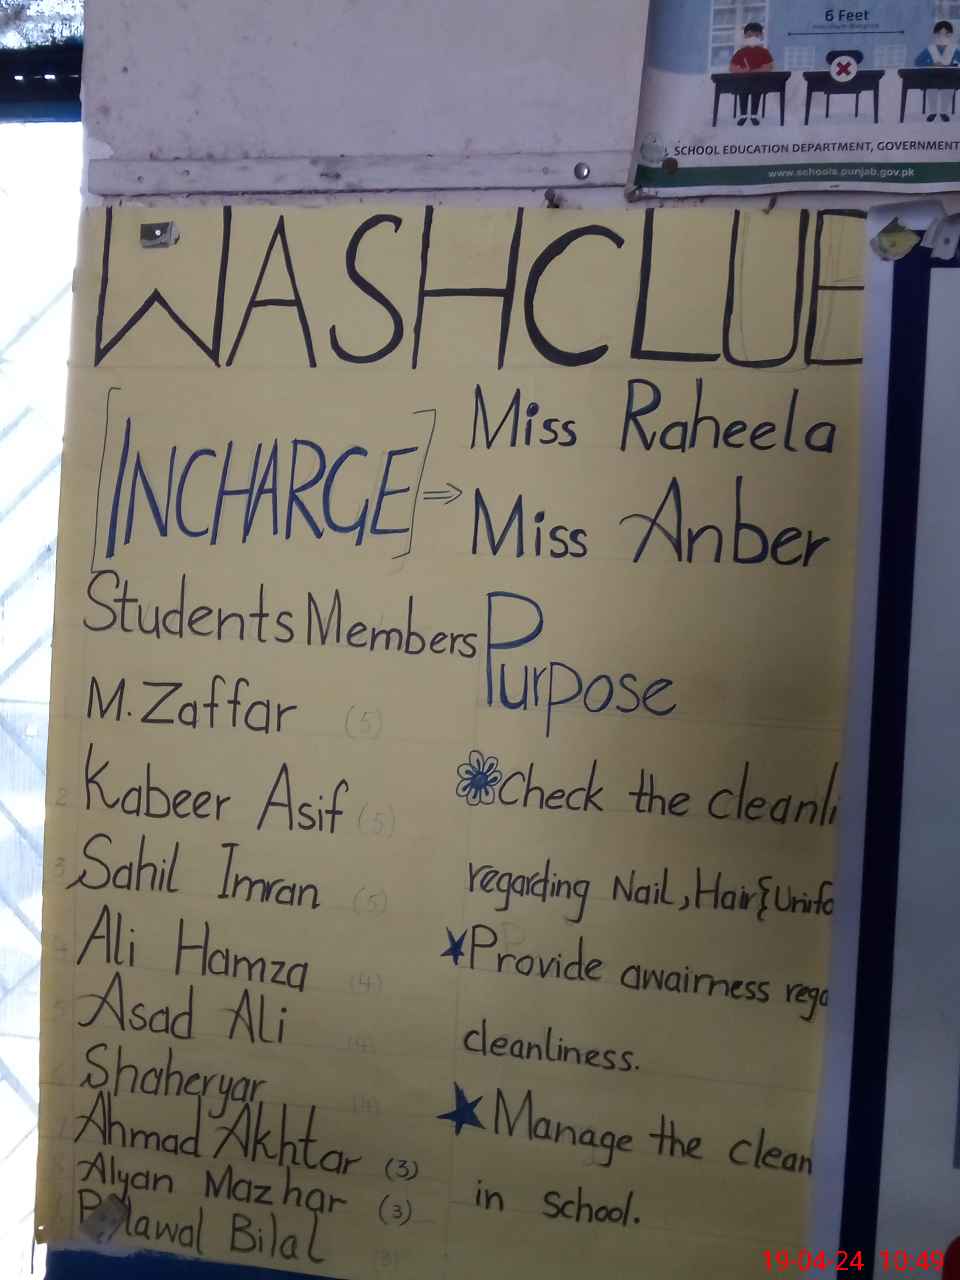 6 Feet
SCHOOL EDUCATION DEPARTMENT, GOVERNMENT
www.schools.punjab.gov.pk
WASHCLUB
[INCHARGE] ⇒ Miss Raheela
Miss Anber
Students Members
M. Zaffar (5)
2 Kabeer Asif (5)
3 Sahil Imran (5)
Ali Hamza (4)
Asad Ali (4)
Shaheryar (4)
Ahmad Akhtar (3)
Alyan Mazhar (3)
Bilal (3)
Purpose
Check the cleanli
regarding Nail, Hair & Unifo
★ Provide awairness rega
cleanliness.
★ Manage the clean
in school.
19-04-24 10:49